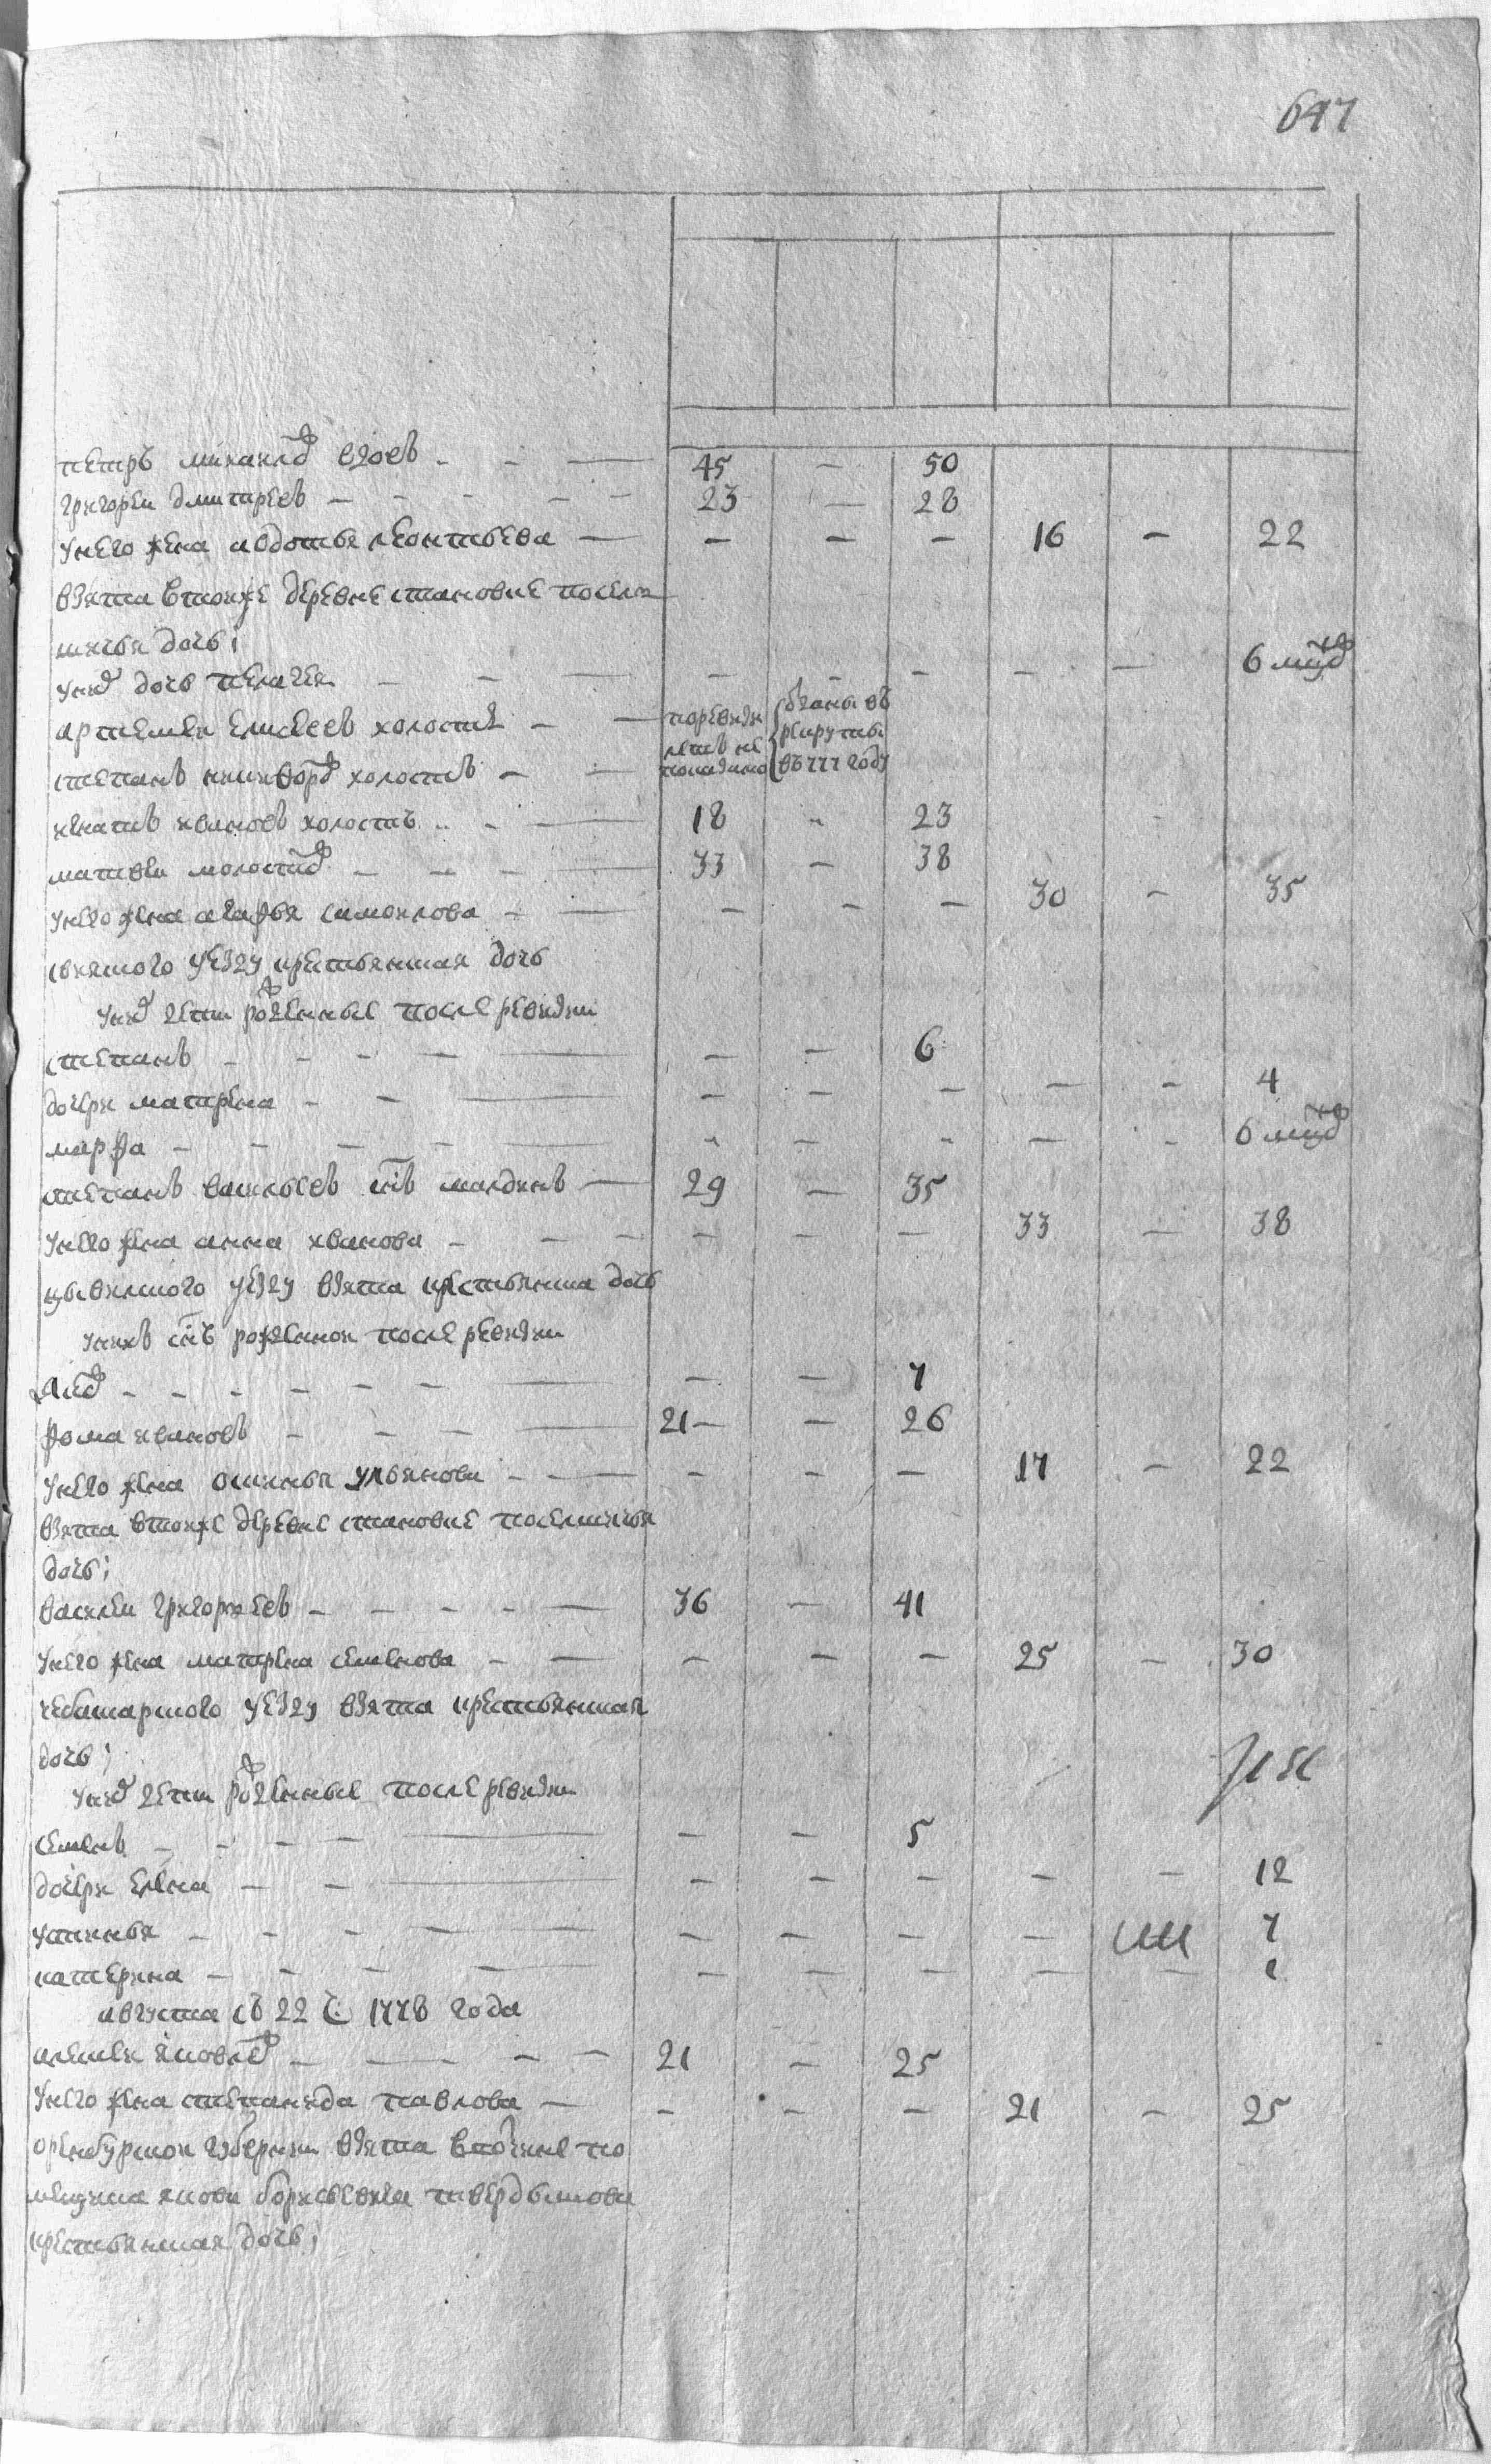 647
петръ михаилов вдовъ - - — 45 — 50
григореи дмитреев — - - - - - 23 — 28
унего жена авдотья леонтьева — — — — 16 — 22
взята втоиже деревне становке посел
шичья дочь;
унид дочь пелагея — - — — - - — — 6 мцов
артемеи елисеев холостъ - — поревизи взяты въ
степанъ холостъ - — летъ не рекруты
показано въ 777 году
игнатъ иванов холостъ - - — 18 - 23
матвеи - - - — 33 — 38
унего жена агафья самоилова - — — - — 30 - 35
свияжского уезду крестьянская дочь
унид дети рожденные после ревизии
степанъ - - - - — — — 6
дочери матрена - - — — - — — - 4
марфа - - - - — - — - — - 6 мцов
степанъ васильев снъ — 29 — 35
унего жена анна иванова - - - — - — 33 — 38
цывилского уезду взята крестьянска дочь
унихъ снъ рожденнои после ревизии
- - - - - - — — — 7
фома ивановъ - - - — 21 — — 26
унего жена улянова - - — - - — 17 - 22
взята втоиже деревне становке поселшичья
дочь;
василеи григорьевъ - - - - — 36 — 41
унего жена матрена семенова - — — — — 25 - 30
чебоксарского уезду взята крестьянская
дочь;
унид дети рожденные после ревизии
семенъ - - - - — — — 5
дочери елена — - — — — — — — 12
устинья - - - - — — — — — 7
катерина - - - - — — — — — — 1
августа съ 22 ч 1778 года
алексеи яковлев - — - - - 21 — 25
унего жена степанида павлова — - - — 21 — 25
оренбурской губернии взята вотчине по
мещика якова борисовича твердышова
крестьянская дочь;